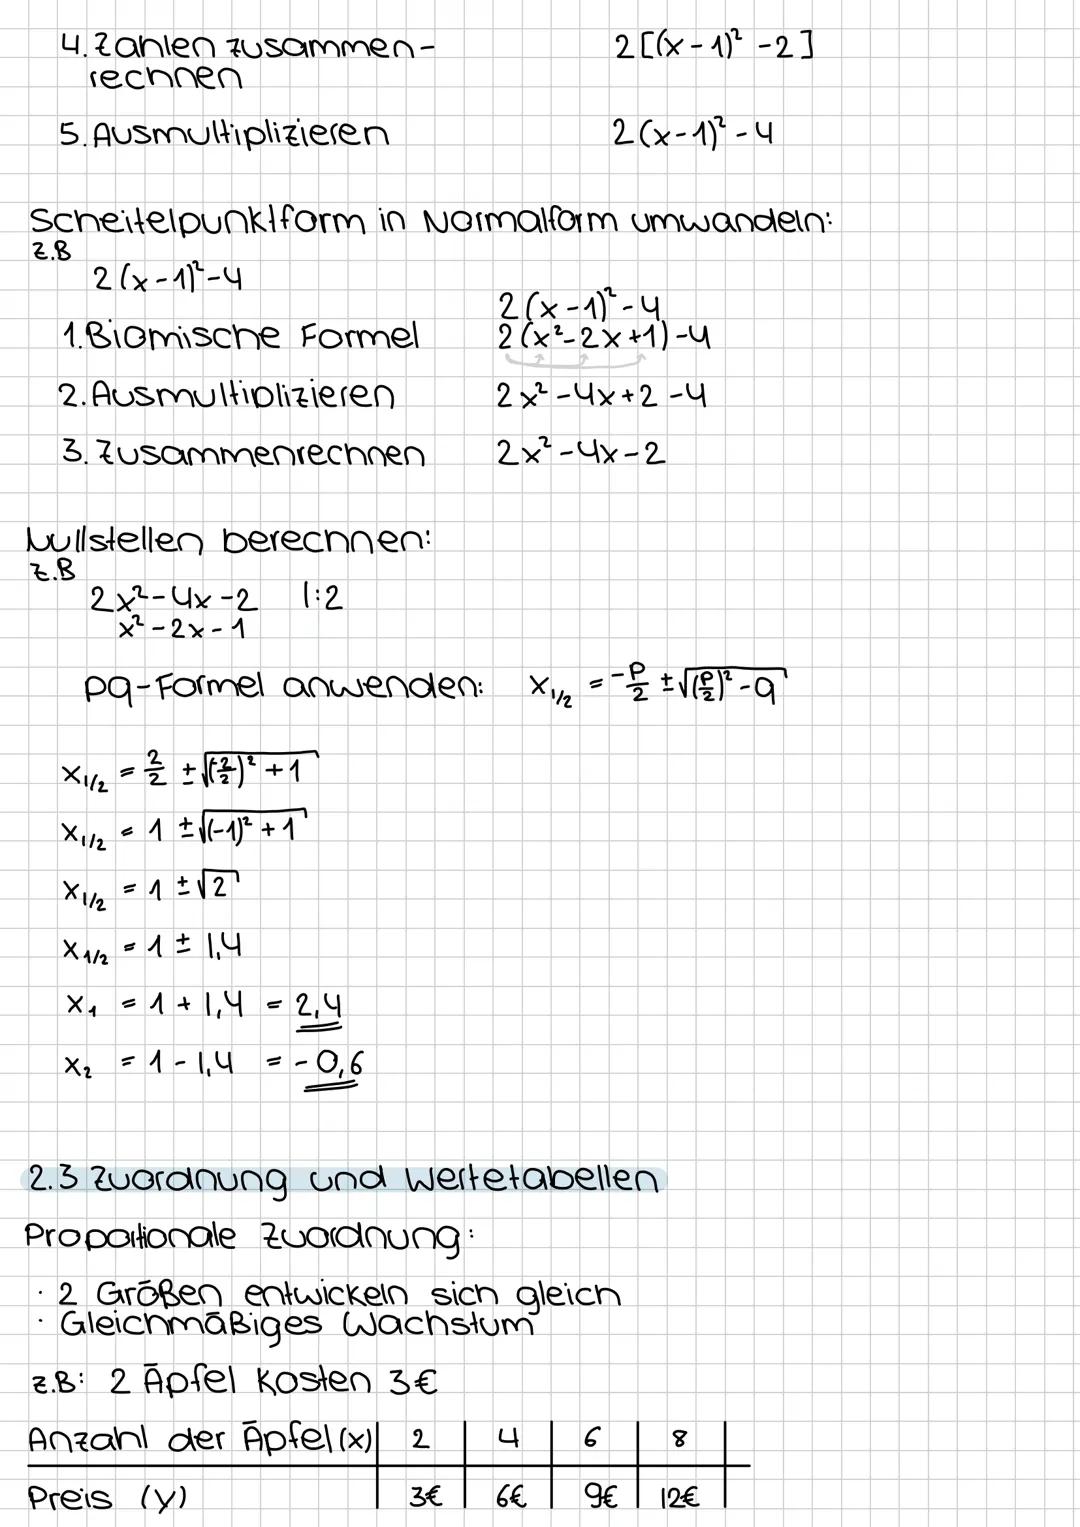 4. Zahlen zusammen- 2[(x-1)² -2]
rechnen
5. Ausmultiplizieren 2(x-1)² - 4
Scheitelpunktform in Normalform umwandeln:
z.B
2(x-1)²-4
2(x-1)²-4
1. Biomische Formel 2(x²-2x+1)-4
2. Ausmultiplizieren 2x²-4x+2-4
3. Zusammenrechnen 2x²-4x-2
Nullstellen berechnen:
z.B
2x²-4x-2 |:2
x²-2x-1
pq-Formel anwenden: x₁/₂ = -p/2 ±√((p/2)²-q)
x₁/₂ = 2/2 ±√((-2/2)²+1)
x₁/₂ = 1 ±√((-1)²+1)
x₁/₂ = 1 ±√2
x₁/₂ = 1 ± 1,4
x₁ = 1 + 1,4 = 2,4
x₂ = 1 - 1,4 = -0,6
2.3 Zuordnung und Wertetabellen
Proportionale Zuordnung:
· 2 Größen entwickeln sich gleich
· Gleichmäßiges Wachstum
z.B: 2 Äpfel kosten 3€
Anzahl der Äpfel (x) 2 4 6 8
Preis (y) 3€ 6€ 9€ 12€